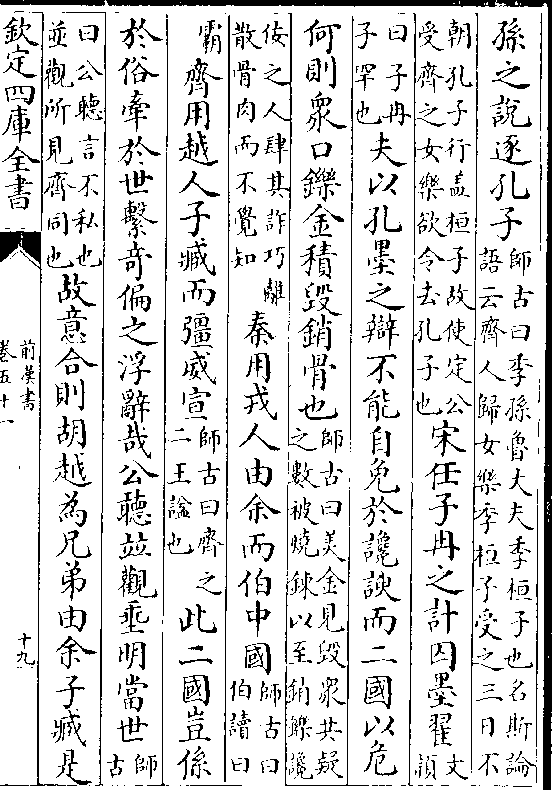 孫之說逐孔子師古曰季孫魯大夫季桓子也名斯論語云齊人歸女樂季桓子受之三日不
朝孔子行盖桓子故使定公受齊之女樂欲令去孔子也宋任子冉之計囚墨翟文穎
曰子冉子罕也夫以孔墨之辯不能自免於讒諛而二國以危
何則衆口鑠金積毀銷骨也師古曰美金見毀衆共疑之數被燒鍊以至銷鑠讒
佞之人肆其詐巧離散骨肉而不覺知秦用戎人由余而伯中國師古曰伯讀曰
霸齊用越人子臧而彊威宣師古曰齊之二王諡也此二國豈係
於俗牽於世繫奇偏之浮辭哉公聽並觀垂明當世師古
曰公聽言不私也並觀所見齊同也故意合則胡越為兄弟由余子臧是
欽定四庫全書
前漢書
卷五十一
十九